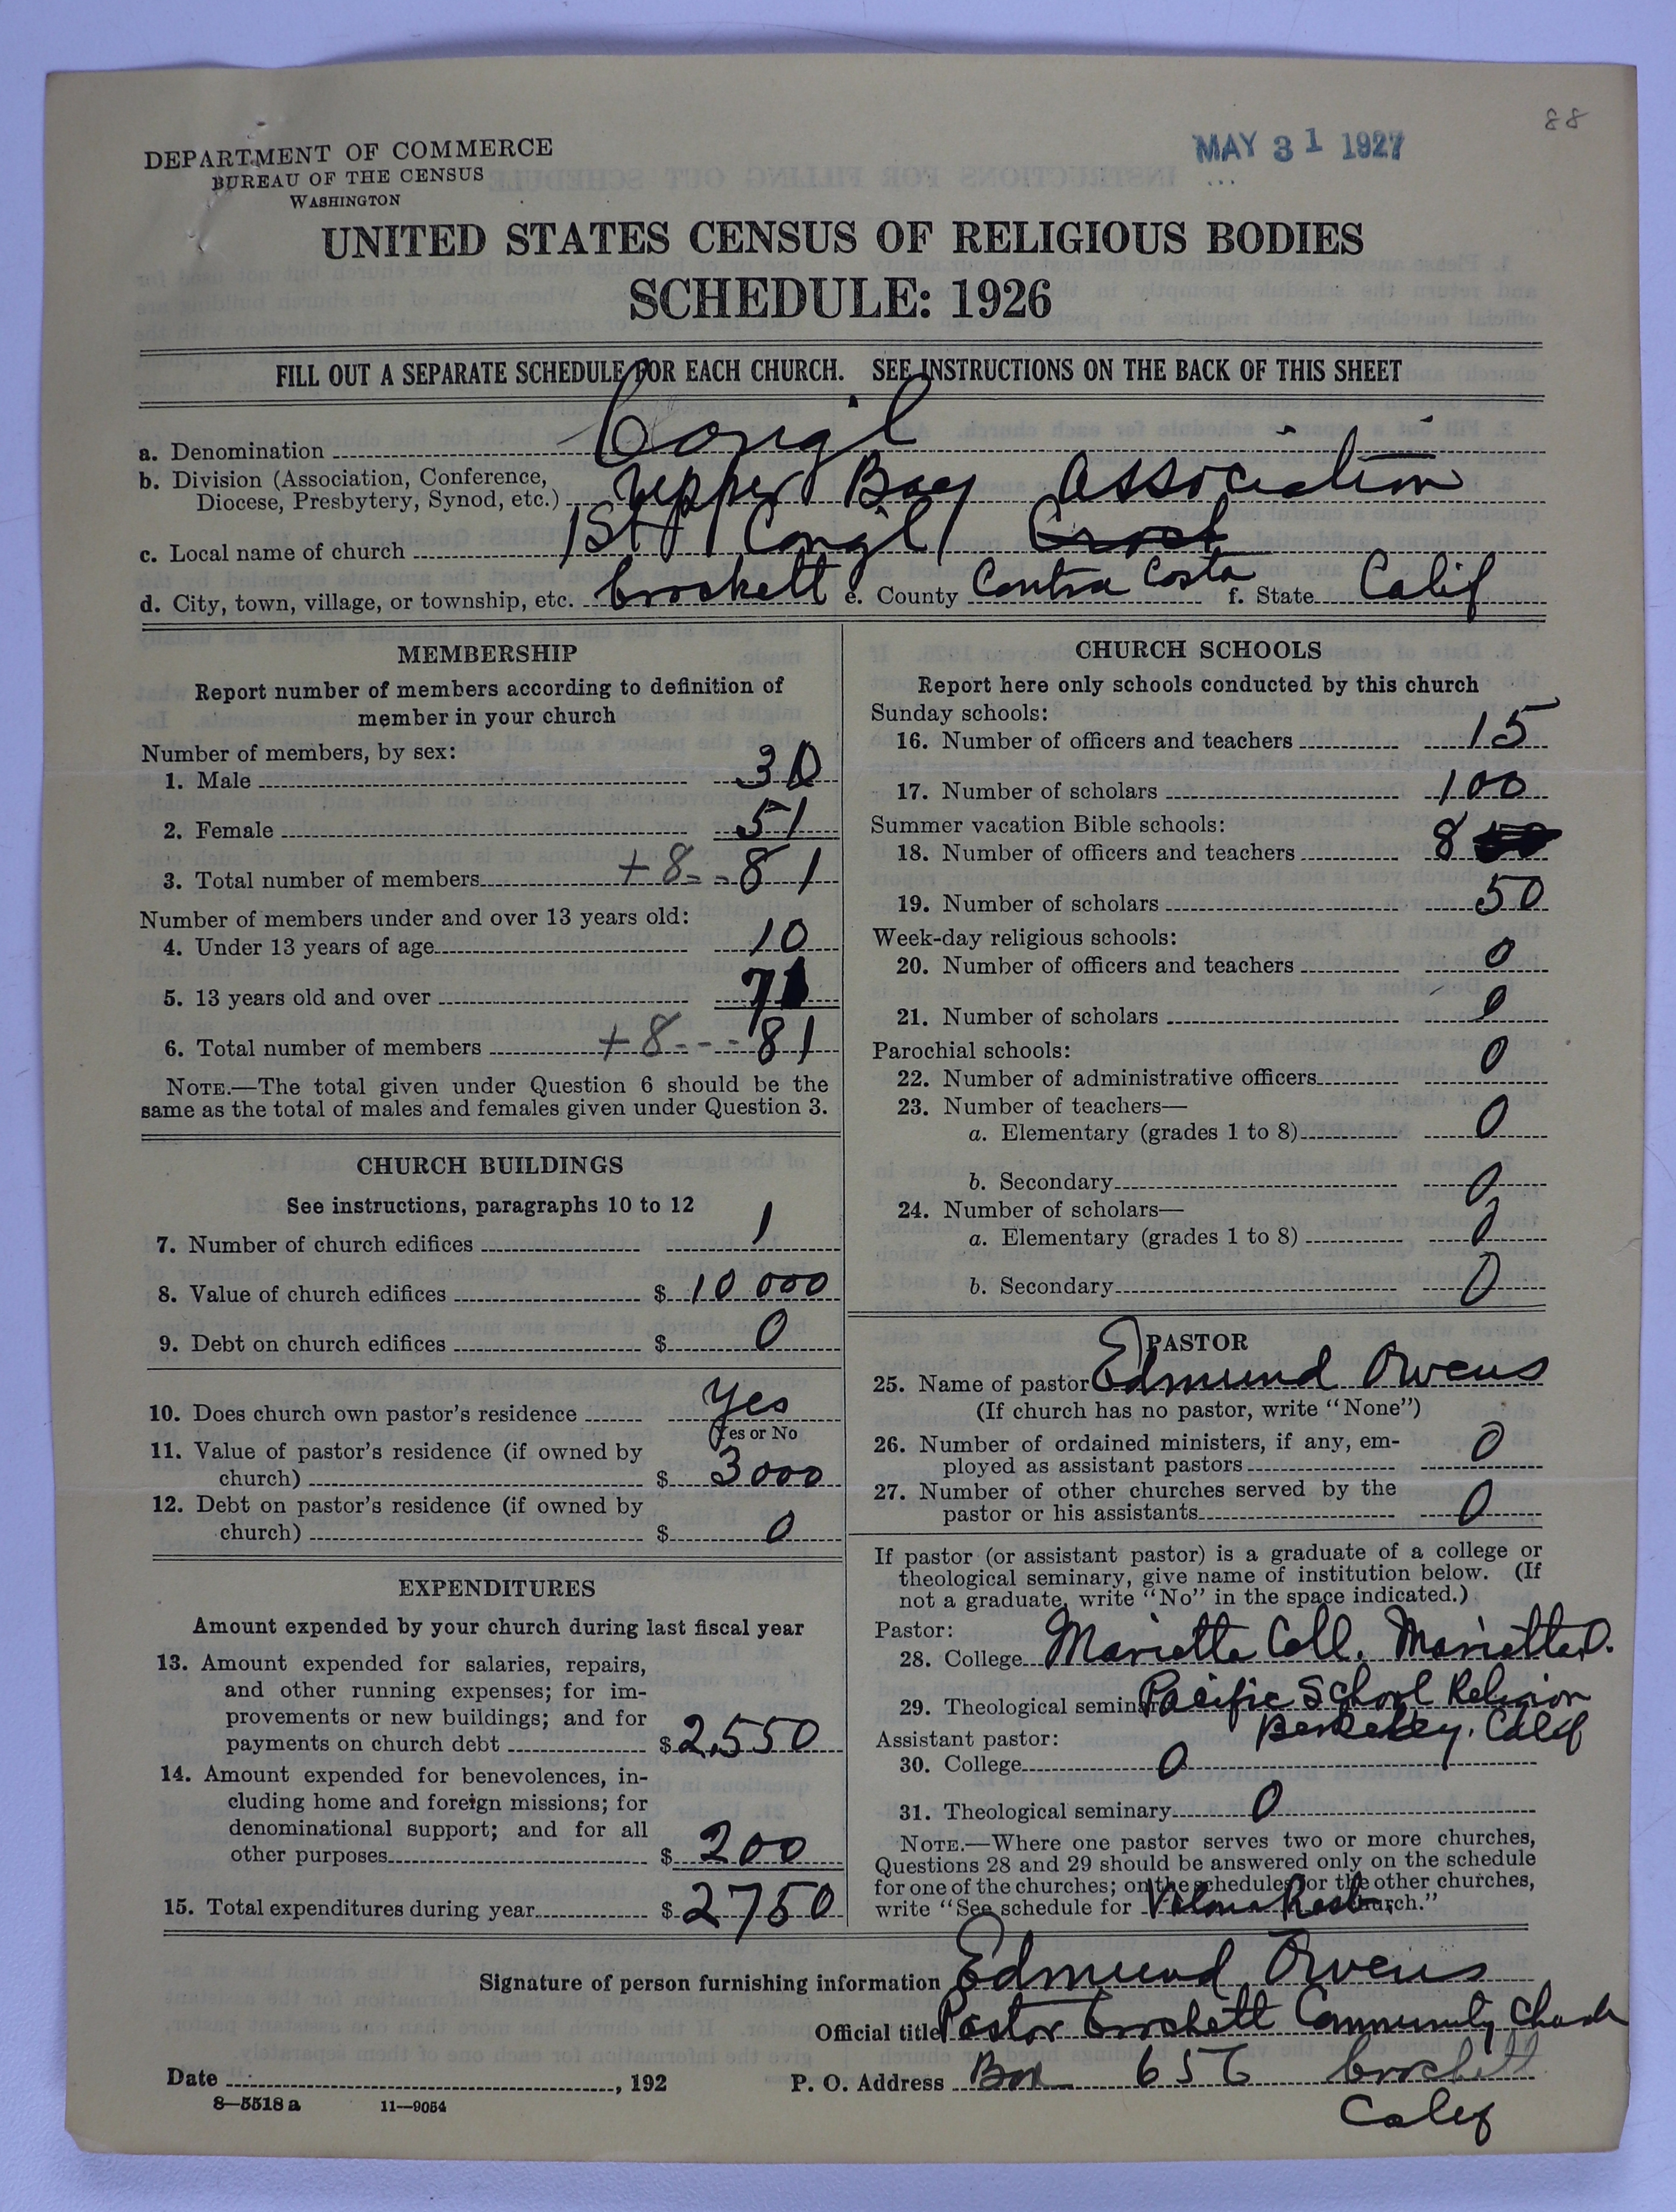 88
MAY 31 1927
DEPARTMENT OF COMMERCE
BUREAU OF THE CENSUS
WASHINGTON
UNITED STATES CENSUS OF RELIGIOUS BODIES
SCHEDULE: 1926
FILL OUT A SEPARATE SCHEDULE FOR EACH CHURCH. SEE INSTRUCTIONS ON THE BACK OF THIS SHEET
a. Denomination Congl
b. Division (Association, Conference,
Diocese, Presbytery, Synod, etc.) Upper Bay Association
c. Local name of church 1st Congl
d. City, town, village, or township, etc. Crockett e. County Contra Costa f. State Calif
MEMBERSHIP
Report number of members according to definition of
member in your church
Number of members, by sex:
1. Male 30
2. Female 51
3. Total number of members +8 81
Number of members under and over 13 years old:
4. Under 13 years of age 10
5. 13 years old and over 71
6. Total number of members +8 81
NOTE.—The total given under Question 6 should be the
same as the total of males and females given under Question 3.
CHURCH BUILDINGS
See instructions, paragraphs 10 to 12
7. Number of church edifices 1
8. Value of church edifices $ 10 000
9. Debt on church edifices $ 0
10. Does church own pastor's residence Yes
(Yes or No
11. Value of pastor's residence (if owned by
church) $ 3000
12. Debt on pastor's residence (if owned by
church) $ 0
EXPENDITURES
Amount expended by your church during last fiscal year
13. Amount expended for salaries, repairs,
and other running expenses; for im-
provements or new buildings; and for
payments on church debt $ 2,550
14. Amount expended for benevolences, in-
cluding home and foreign missions; for
denominational support; and for all
other purposes $ 200
15. Total expenditures during year $ 2750
CHURCH SCHOOLS
Report here only schools conducted by this church
Sunday schools:
16. Number of officers and teachers 15
17. Number of scholars 100
Summer vacation Bible schools:
18. Number of officers and teachers 8
19. Number of scholars 50
Week-day religious schools:
20. Number of officers and teachers 0
21. Number of scholars 0
Parochial schools:
22. Number of administrative officers 0
23. Number of teachers—
a. Elementary (grades 1 to 8) 0
b. Secondary 0
24. Number of scholars—
a. Elementary (grades 1 to 8) 0
b. Secondary 0
PASTOR
25. Name of pastor Edmund Owens
(If church has no pastor, write "None")
26. Number of ordained ministers, if any, em-
ployed as assistant pastors 0
27. Number of other churches served by the
pastor or his assistants 0
If pastor (or assistant pastor) is a graduate of a college or
theological seminary, give name of institution below. (If
not a graduate, write "No" in the space indicated.)
Pastor:
28. College Marietta Coll. Marietta O.
29. Theological seminary Pacific School Religion
Berkeley. Calif
Assistant pastor:
30. College 0
31. Theological seminary 0
NOTE.—Where one pastor serves two or more churches,
Questions 28 and 29 should be answered only on the schedule
for one of the churches; on the schedules for the other churches,
write "See schedule for Church."
Signature of person furnishing information Edmund Owens
Official title Pastor Crockett Community Church
Date , 192 P. O. Address Box 656 Crockett
Calif
8—5518 a 11—9054